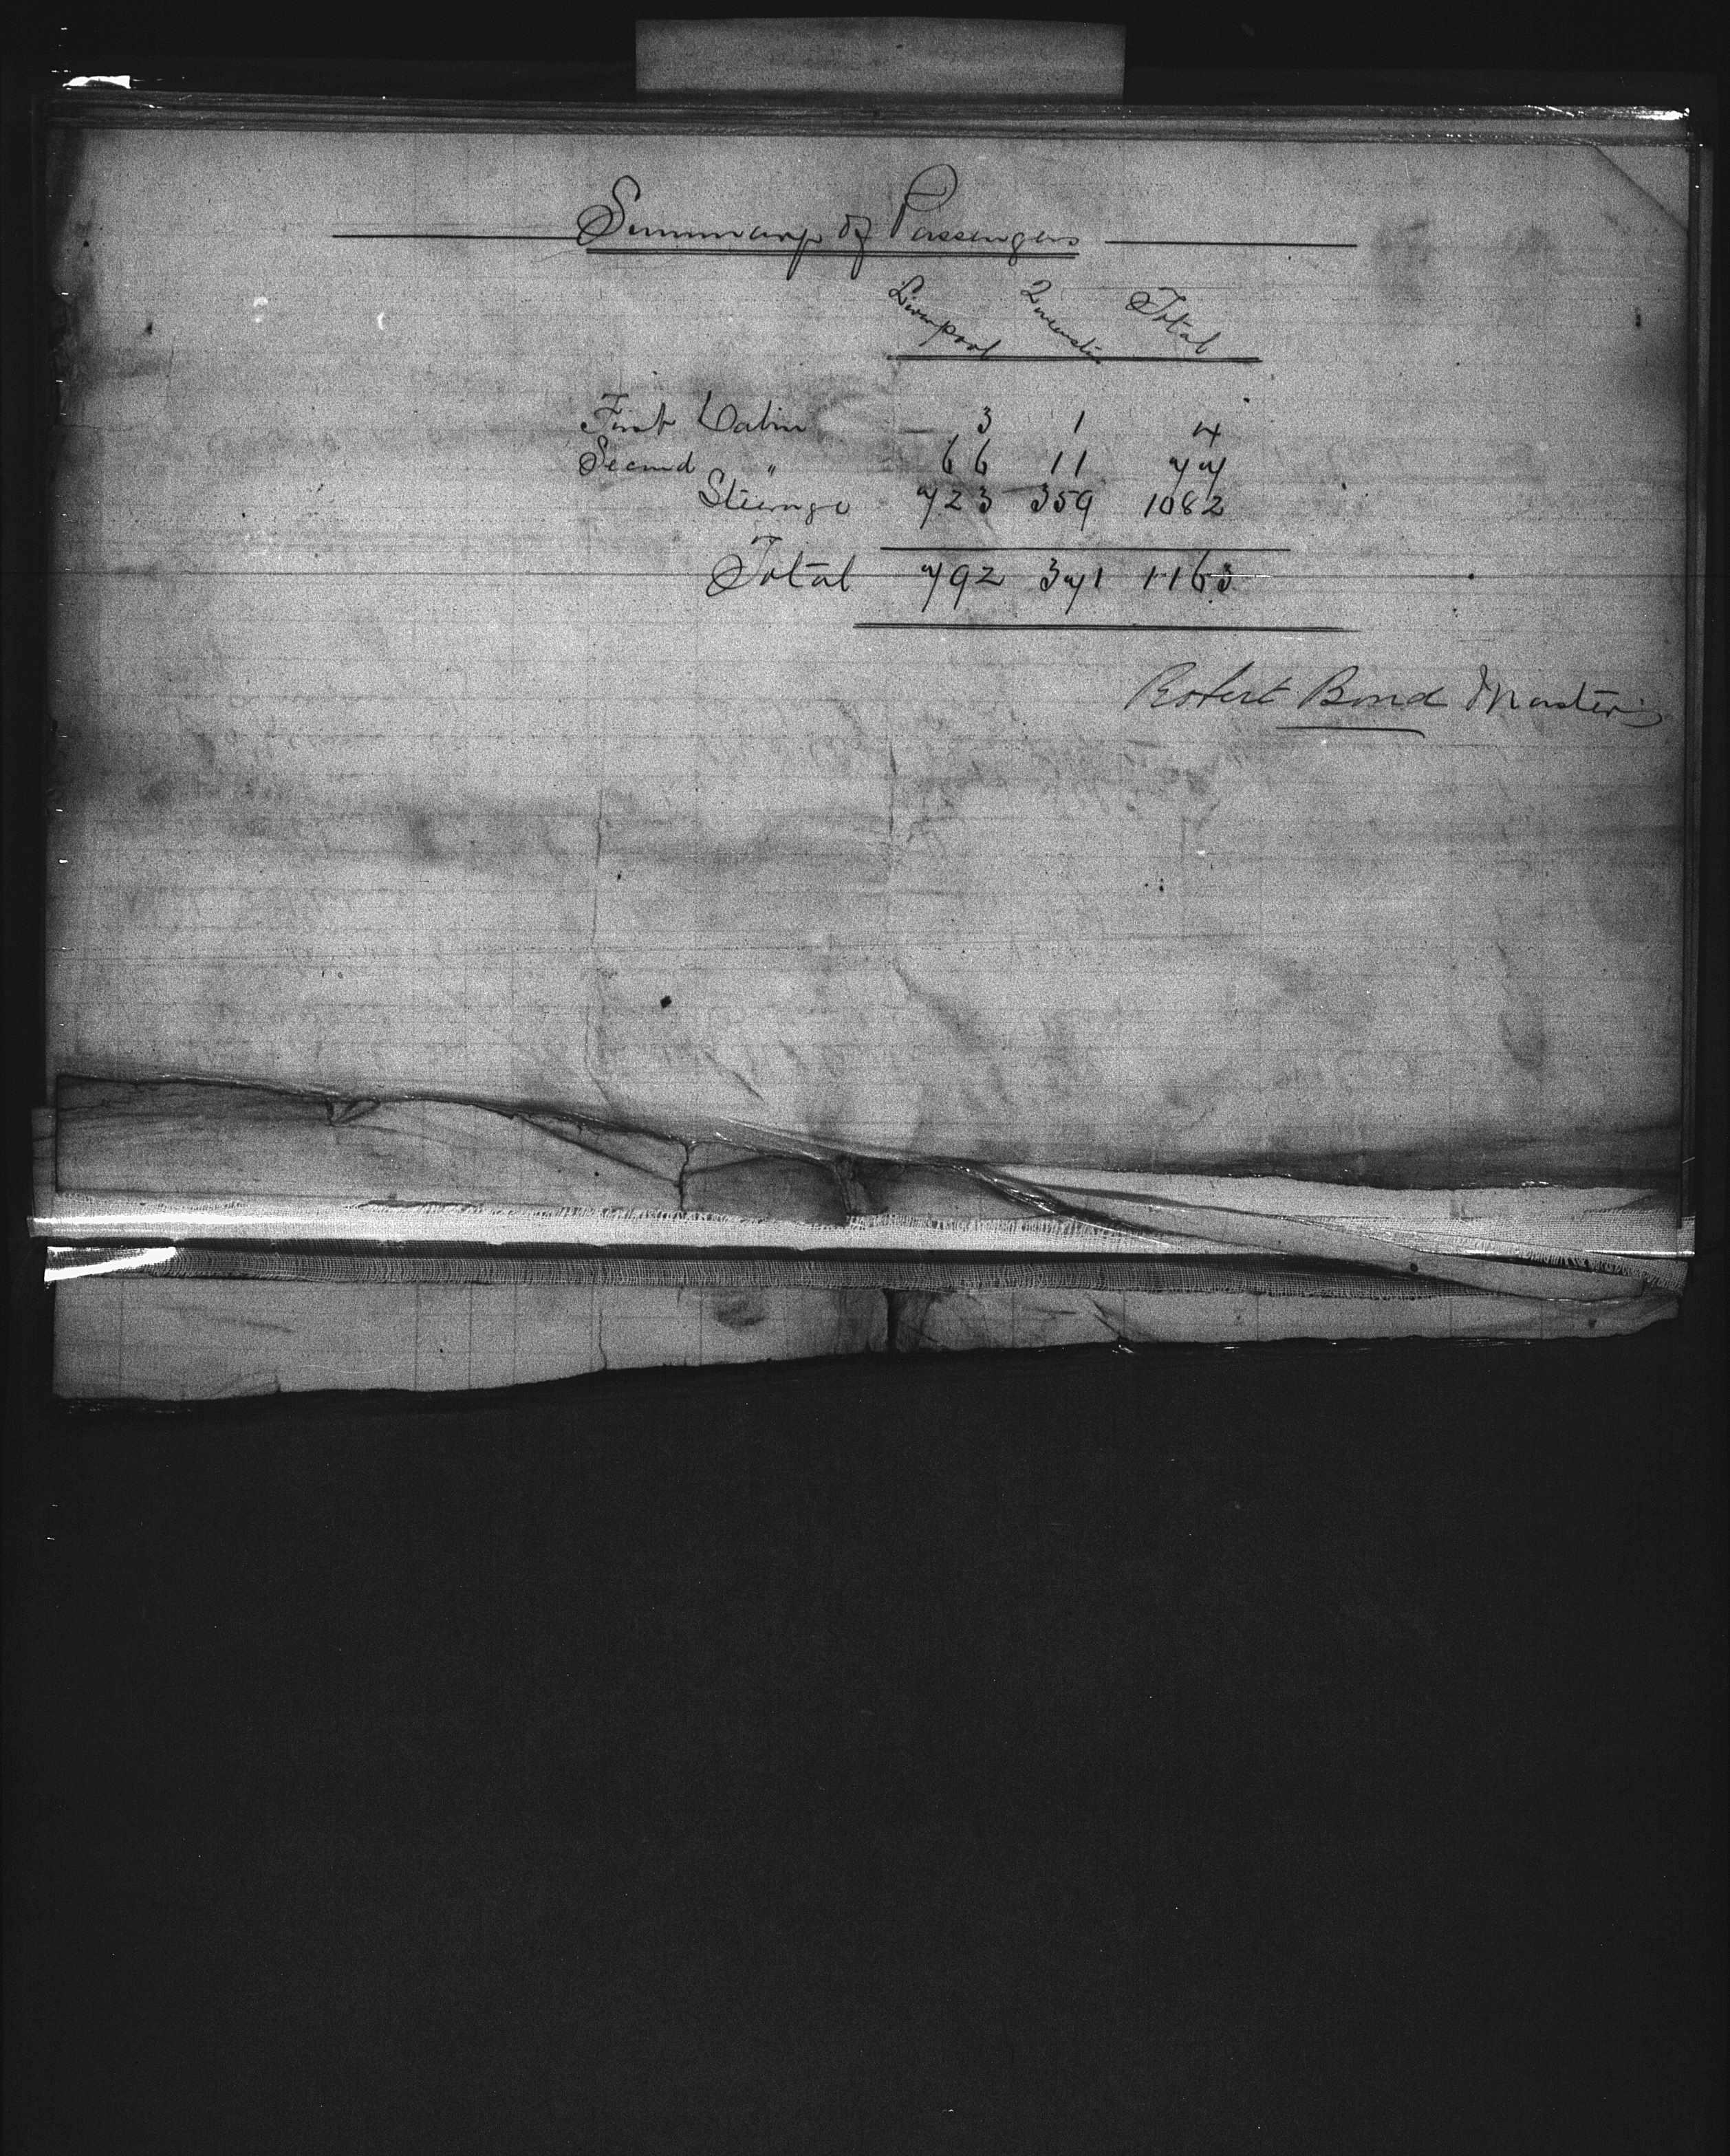 Summary of Passengers
Liverpool Queenstn Total
First Cabin 3 1 4
Second " 66 11 77
Steerage 723 359 1082
Total 792 371 1163
Robert Bond Master